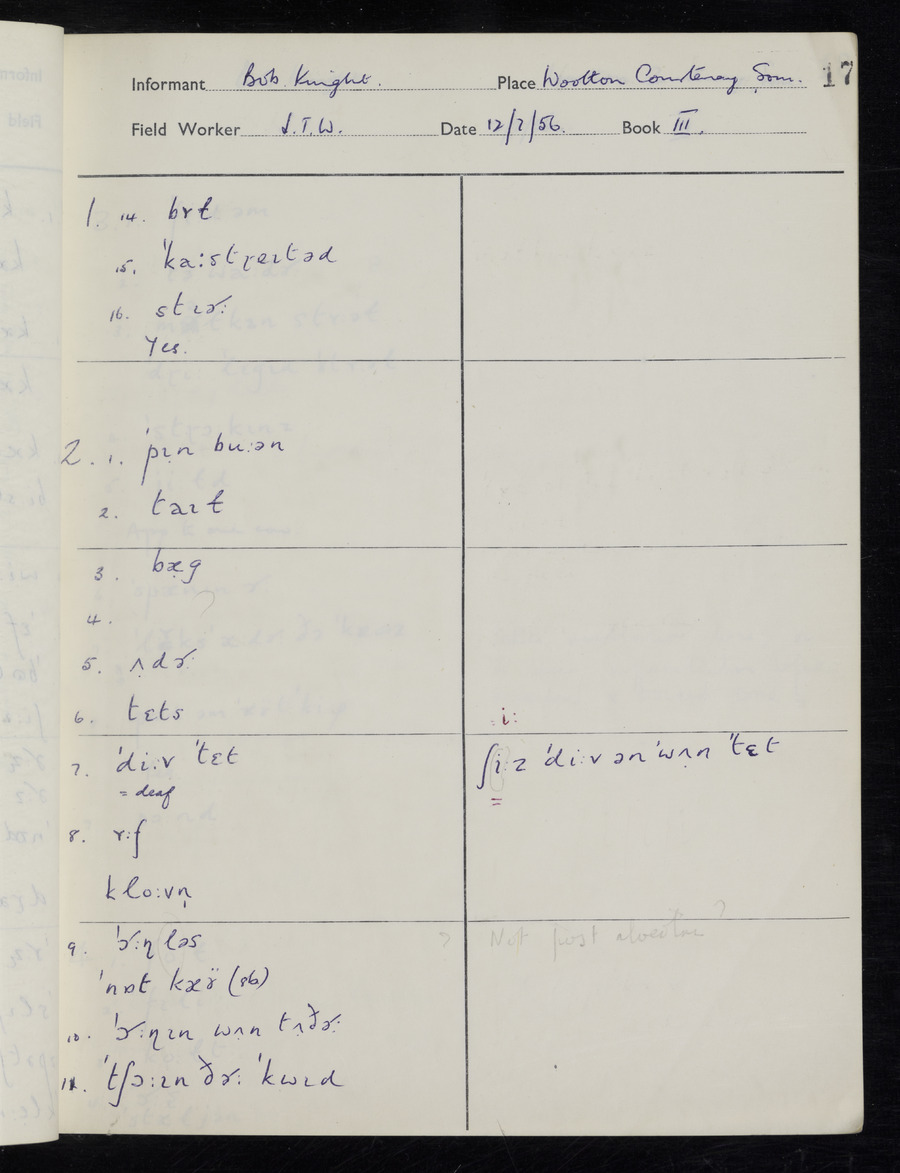 Informant Bob Knight. Place Wootton Courtenay Som. 17
Field Worker J.T.W. Date 12/7/56. Book III.
1. 14. bʏɫ
15. ˈka:stɽeɪtəd
16. stɪɚ:
Yes.
2. 1. ˈpɪn bu:ən
2. taɪɫ
3. bæ̣g
4. ?
5. ʌ̣dɚ:
6. tɛts
7. ˈdi:v ˈtɛt
= deaf
8. ɤ:f
klo:vṇ
9. ˈɔ˞:ɳləs
ˈnɒt kæɤ̈ (sb)
10. ˈɔ˞:ɳɪn wʌn tʌðɚ:
11. ˈtʃɔ:ɪn ðɚ: ˈkwɪd
i:
ʃi:z ˈdi:v ən ˈwʌ̣n ˈtɛt
=
? Not post alveolar ?